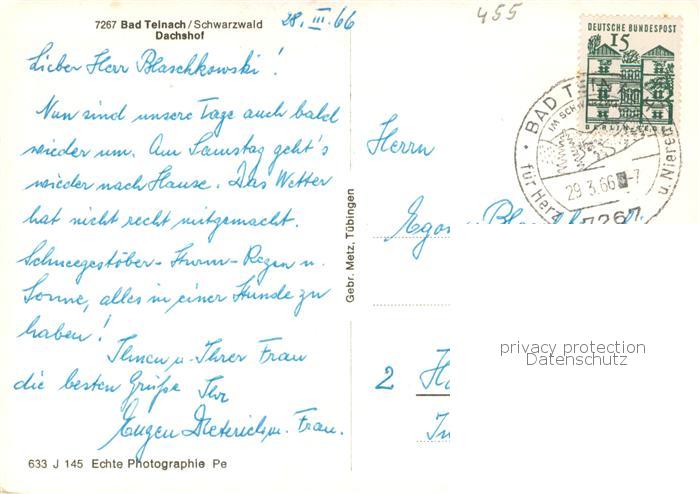 7267 Bad Teinach/Schwarzwald
Dachshof
28. III. 66
455
Lieber Herr Blaschkowski!
Nun sind unsere Tage auch bald
wieder um. Am Samstag geht's
wieder nach Hause. Das Wetter
hat nicht recht mitgemacht.
Schneegestöber - Sturm - Regen u.
Sonne, alles in einer Stunde zu
haben!
Ihnen u. Ihrer Frau
die besten Grüße Ihr
Eugen Dieterich u. Frau.
633 J 145 Echte Photographie Pe
Gebr. Metz, Tübingen
DEUTSCHE BUNDESPOST
15
BERLIN-TEGEL
BAD TEINACH
IM SCHWARZWALD
29.3.66-7
für Herz
Nieren u.
7267
Herrn
Egon
2
privacy protection
Datenschutz